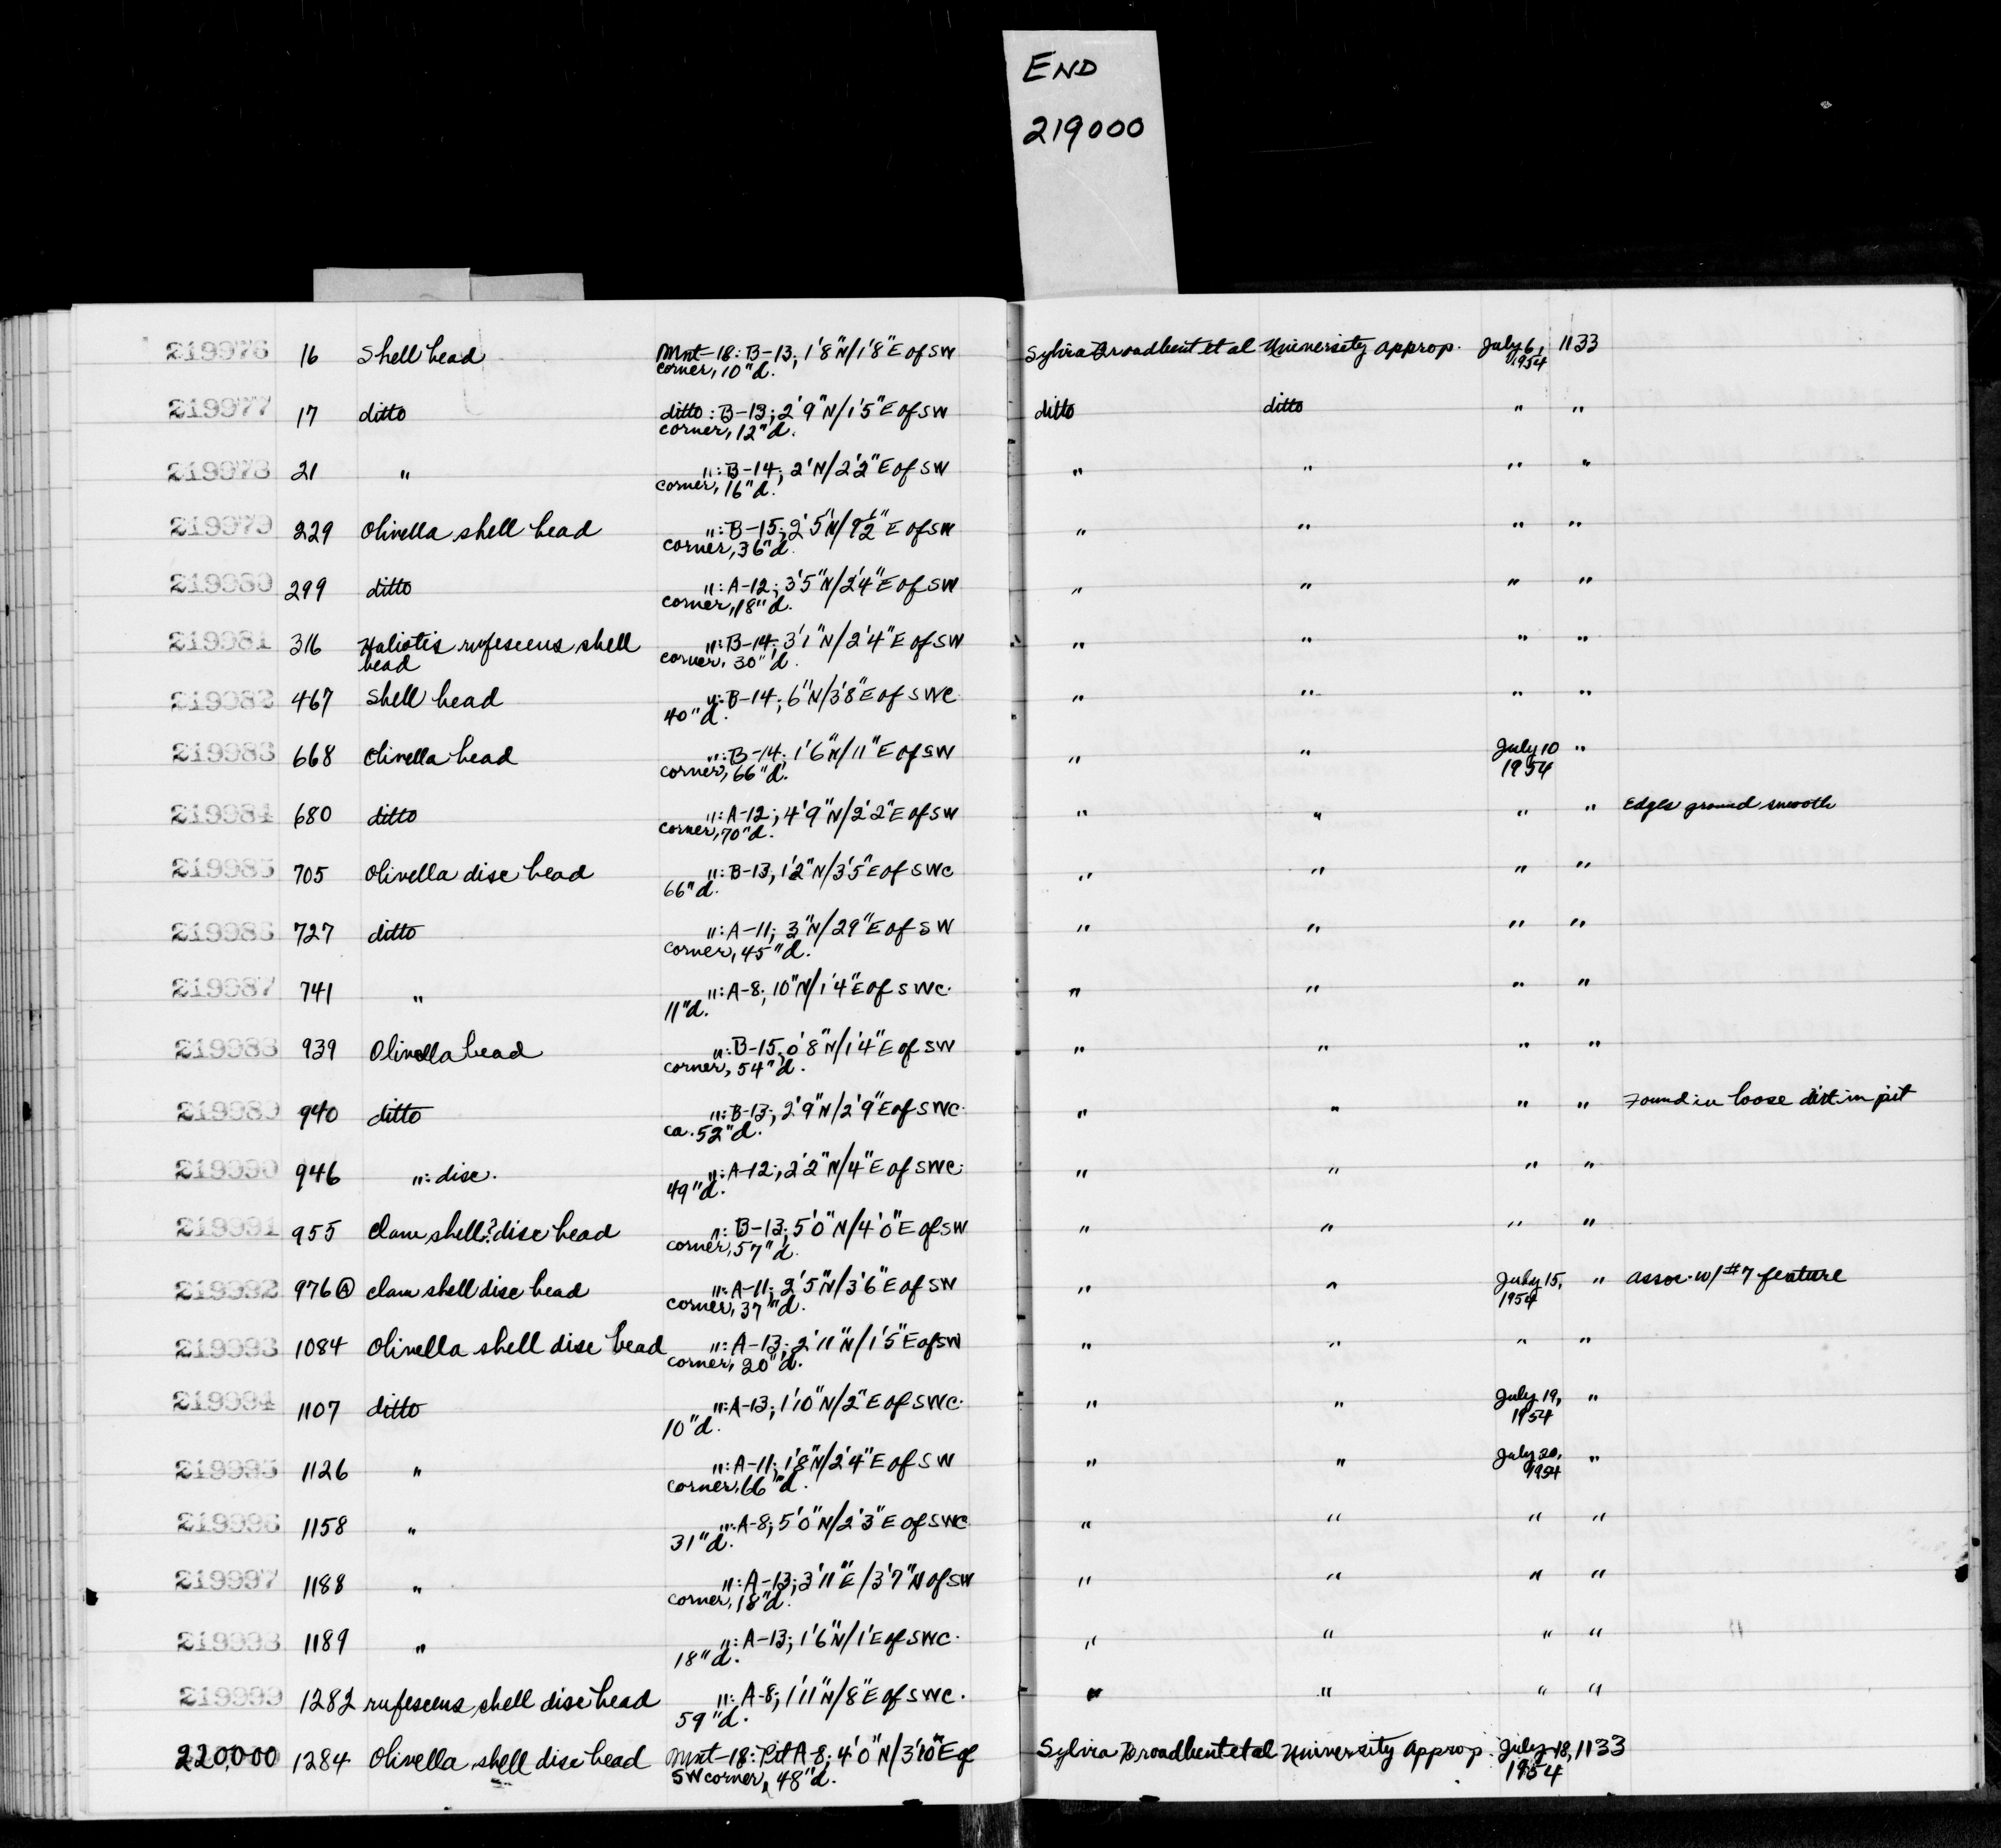 END
219000
219976 16 Shell bead Mnt-18: B-13; 1'8"N/1'8"E of SW Sylvia Broadbent et al University Approp. July 6, 1133
corner, 10"d. 1954
219977 17 ditto ditto: B-13; 2'9"N/1'5"E of SW ditto ditto " "
corner, 12"d.
219978 21 " ": B-14; 2'N/2'2"E of SW " " " "
corner, 16"d.
219979 229 Olivella shell bead ": B-15; 2'5"N/9½"E of SW " " " "
corner, 36"d.
219980 299 ditto ": A-12; 3'5"N/2'4"E of SW " " " "
corner, 18"d.
219981 316 Haliotis rufescens shell ": B-14; 3'1"N/2'4"E of SW " " " "
bead corner, 30"d.
219982 467 Shell bead ": B-14; 6"N/3'8"E of SWC " " " "
40"d.
219983 668 Olivella bead ": B-14; 1'6"N/11"E of SW " " July 10 "
corner, 66"d. 1954
219984 680 ditto ": A-12; 4'9"N/2'2"E of SW " " " " Edges ground smooth
corner, 70"d.
219985 705 Olivella disc bead ": B-13; 1'2"N/3'5"E of SWC " " " "
66"d.
219986 727 ditto ": A-11; 3"N/29"E of SW " " " "
corner, 45"d.
219987 741 " ": A-8; 10"N/1'4"E of SWC. " " " "
11"d.
219988 939 Olivella bead ": B-15; 0'8"N/1'4"E of SW " " " "
corner, 54"d.
219989 940 ditto ": B-13; 2'9"N/2'9"E of SWC. " " " " Found in loose dirt in pit
ca. 52"d.
219990 946 ": disc. ": A-12; 2'2"N/4"E of SWC. " " " "
49"d.
219991 955 Clam shell? disc bead ": B-13; 5'0"N/4'0"E of SW " " " "
corner, 57"d.
219992 976 Ⓐ clam shell disc bead ": A-11; 2'5"N/3'6"E of SW " " July 15, " assoc. w/ #7 feature
corner, 37"d. 1954
219993 1084 Olivella shell disc bead ": A-13; 2'11"N/1'5"E of SW " " " "
corner, 20"d.
219994 1107 ditto ": A-13; 1'10"N/2"E of SWC. " " July 19, "
10"d. 1954
219995 1126 " ": A-11; 1'8"N/2'4"E of SW " " July 20, "
corner, 66"d. 1954
219996 1158 " ": A-8; 5'0"N/2'3"E of SWC " " " "
31"d.
219997 1188 " ": A-13; 3'11"E/3'7"N of SW " " " "
corner, 18"d.
219998 1189 " ": A-13; 1'6"N/1'E of SWC. " " " "
18"d.
219999 1282 rufescens shell disc bead ": A-8; 1'11"N/8"E of SWC. " " " "
59"d.
220,000 1284 Olivella shell disc bead Mnt-18: Pit A-8; 4'0"N/3'10"E of Sylvia Broadbent et al University Approp. July 18, 1133
SW corner, 48"d. 1954